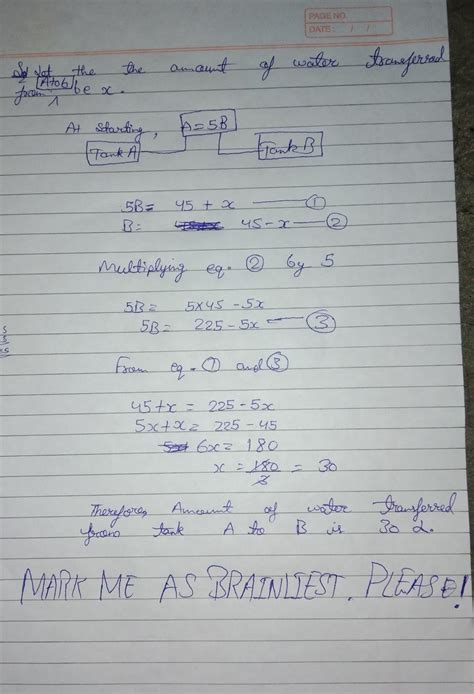 PAGE NO.
DATE: / /
Sol Let the the amount of water transferred
from A to b be x.
At starting, A = 5B
Tank A Tank B
5B = 45 + x ①
B = 45 - x ②
Multiplying eq. ② by 5
5B = 5x45 - 5x
5B = 225 - 5x ③
From eq. ① and ③
45 + x = 225 - 5x
5x + x = 225 - 45
6x = 180
x = 180 = 30
Therefore, Amount of water transferred
from tank A to B is 30 L.
MARK ME AS BRAINLIEST. PLEASE!